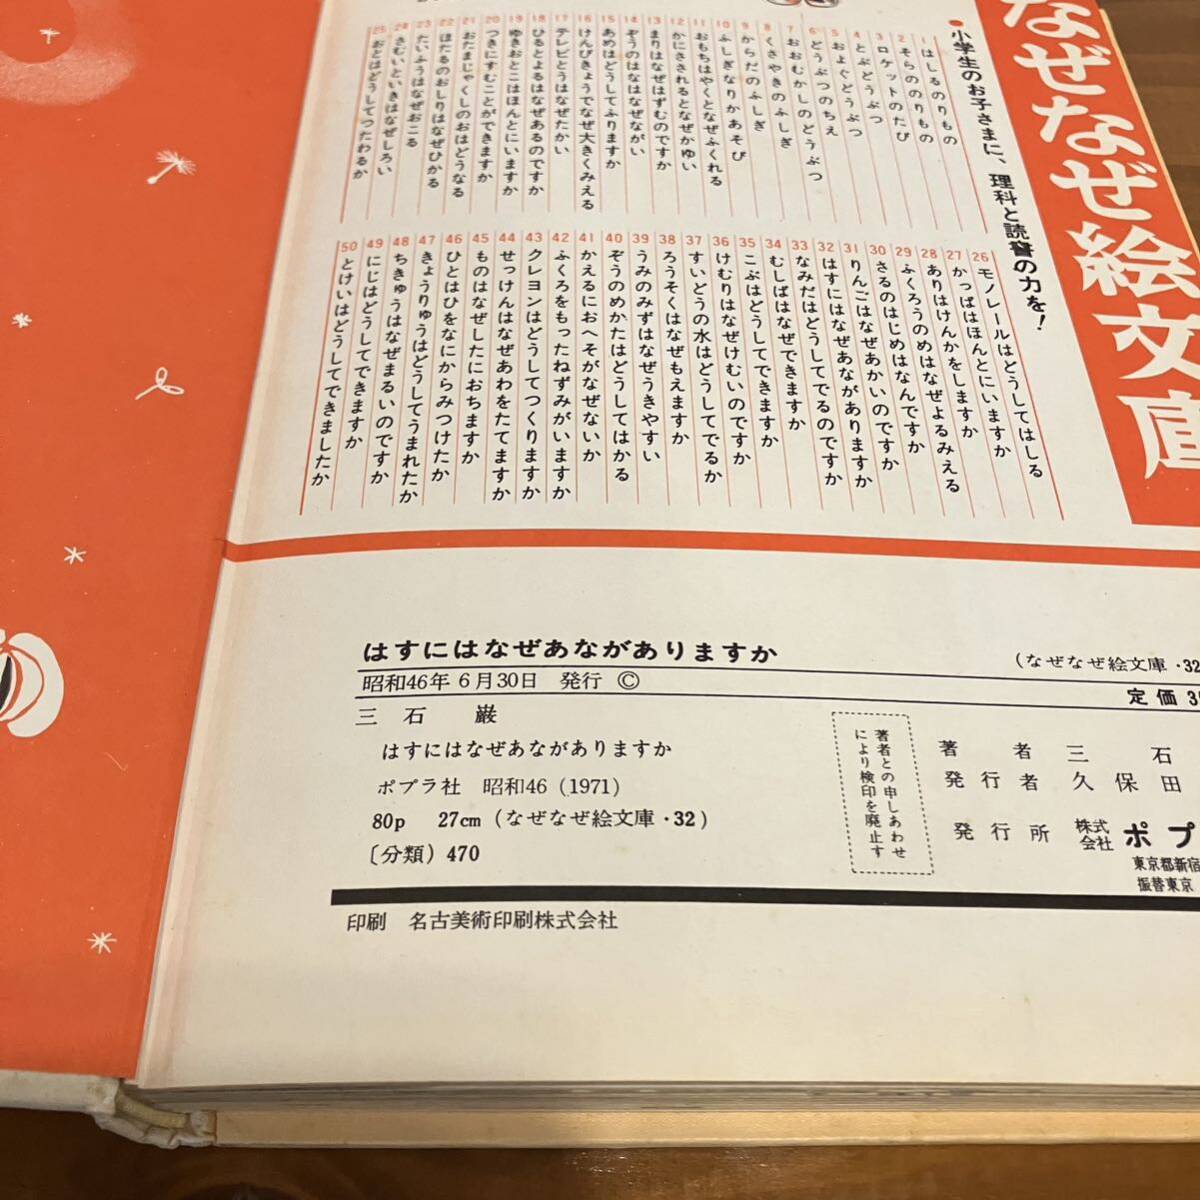 なぜなぜ絵文庫
●小学生のお子さまに、理科と読書の力を！
1 はしるのりもの
2 そらののりもの
3 ロケットのたび
4 とぶどうぶつ
5 およぐどうぶつ
6 どうぶつのちえ
7 おおむかしのどうぶつ
8 くさやきのふしぎ
9 からだのふしぎ
10 ふしぎなりかあそび
11 おもちはやくとなぜふくれる
12 かにさされるとなぜかゆい
13 まりはなぜはずむのですか
14 ぞうのはなはなぜながい
15 あめはどうしてふりますか
16 けんびきょうでなぜ大きくみえる
17 テレビとうはなぜたかい
18 ひるとよるはなぜあるのですか
19 ゆきおとこはほんとにいますか
20 つきにすむことができますか
21 おたまじゃくしのおはどうなる
22 ほたるのおしりはなぜひかる
23 たいふうはなぜおこる
24 さむいといきはなぜしろい
25 おとはどうしてつたわるか
26 モノレールはどうしてはしる
27 かっぱはほんとにいますか
28 ありはけんかをしますか
29 ふくろうのめはなぜよるみえる
30 さるのはじめはなんですか
31 りんごはなぜあかいのですか
32 はすにはなぜあながありますか
33 なみだはどうしてでるのですか
34 むしばはなぜできますか
35 こぶはどうしてできますか
36 けむりはなぜけむいのですか
37 すいどうの水はどうしてでるか
38 ろうそくはなぜもえますか
39 うみのみずはなぜうきやすい
40 ぞうのめかたはどうしてはかる
41 かえるにおへそがなぜないか
42 ふくろをもったねずみがいますか
43 クレヨンはどうしてつくりますか
44 せっけんはなぜあわをたてますか
45 ものはなぜしたにおちますか
46 ひとはひをなにからみつけたか
47 きょうりゅうはどうしてうまれたか
48 ちきゅうはなぜまるいのですか
49 にじはどうしてできますか
50 とけいはどうしてできましたか
はすにはなぜあながありますか
（なぜなぜ絵文庫・32
昭和46年6月30日 発行 ©
定価
三石 巌
はすにはなぜあながありますか
ポプラ社 昭和46（1971）
80p 27cm（なぜなぜ絵文庫・32）
〔分類〕470
著者との申しあわせ
により検印を廃止す
著者 三石
発行者 久保田
発行所 株式会社 ポプ
東京都新宿
振替東京
印刷 名古美術印刷株式会社